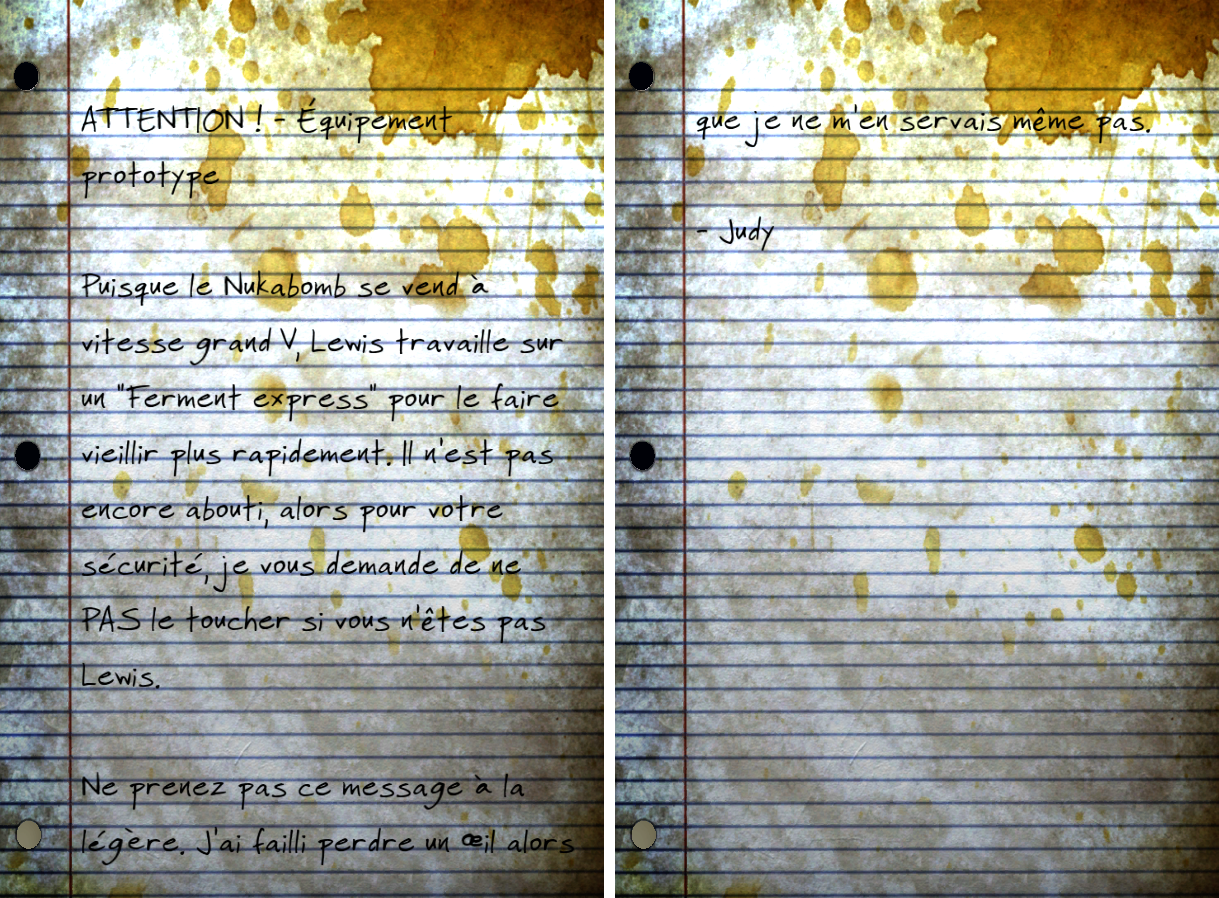 ATTENTION ! - Équipement
prototype
Puisque le Nukabomb se vend à
vitesse grand V, Lewis travaille sur
un "Ferment express" pour le faire
vieillir plus rapidement. Il n'est pas
encore abouti, alors pour votre
sécurité, je vous demande de ne
PAS le toucher si vous n'êtes pas
Lewis.
Ne prenez pas ce message à la
légère. J'ai failli perdre un œil alors
que je ne m'en servais même pas.
- Judy